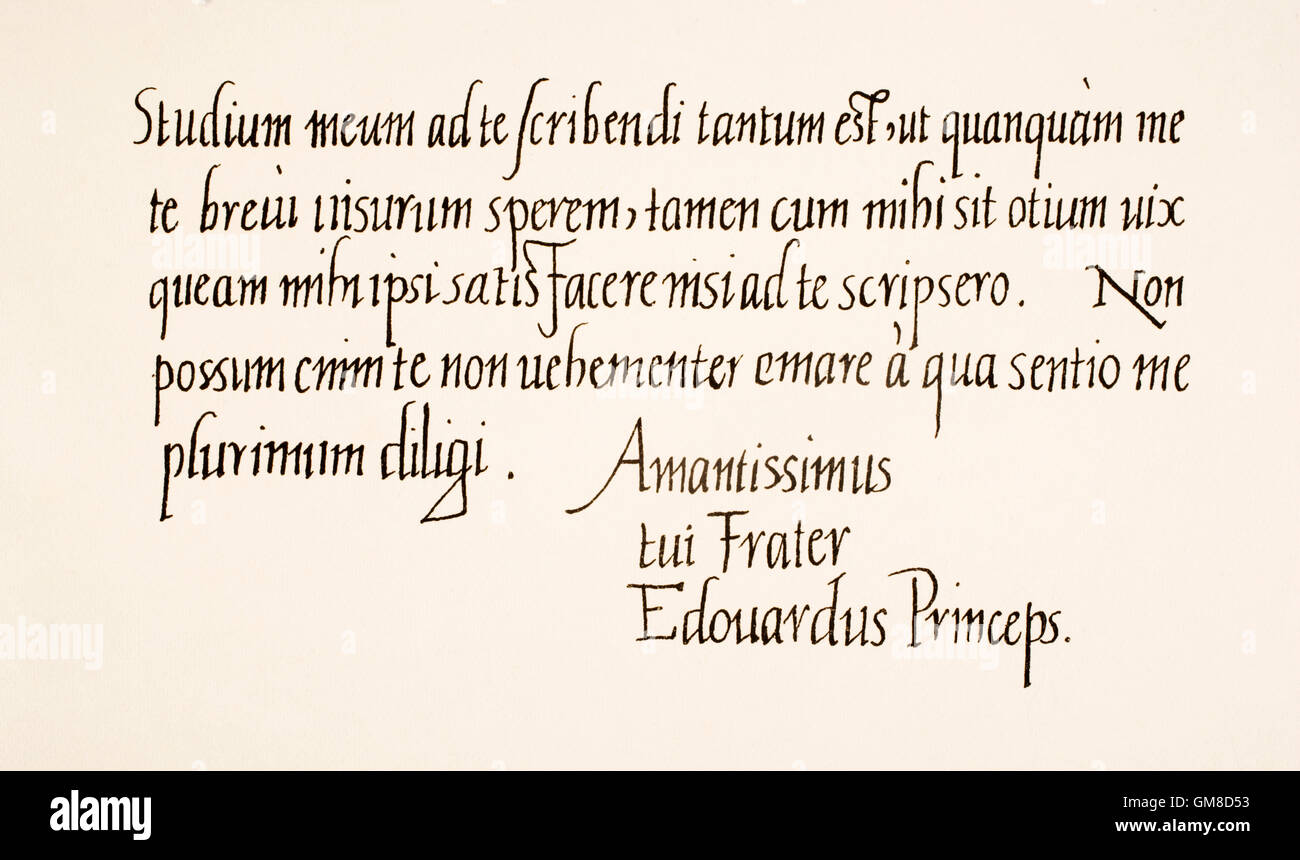 Studium meum ad te scribendi tantum est, ut quanquàm me
te breùi uisurum sperem, tamen cum mihi sit otium uix
queam mihi ipsi satis facere nisi ad te scripsero. Non
possum enim te non uehementer emare à qua sentio me
plurimum diligi.
Amantissimus
tui Frater
Edouardus Princeps.
alamy
a
alamy
Image ID: GM8D53
www.alamy.com